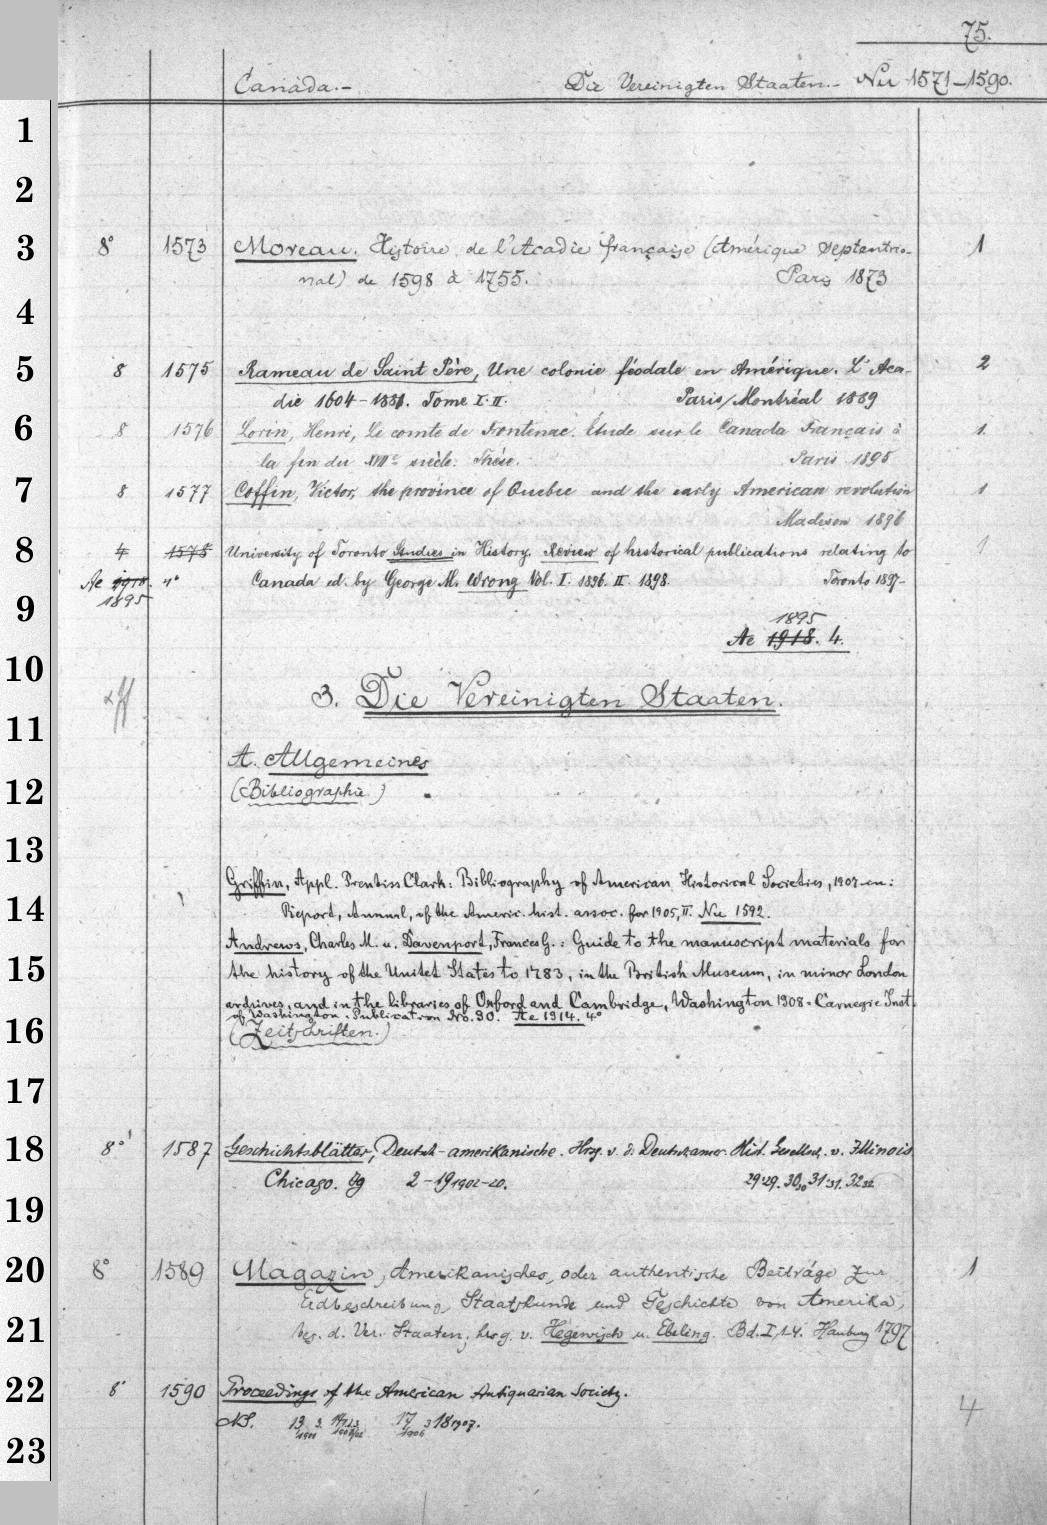 75.
Canada.- Die Vereinigten Staaten.- Nu 1571-1590.
1
2
3 8° 1573 Moreau. Histoire de l'Acadie française (Amérique septentrio- 1
nal) de 1598 à 1755. Paris 1873
4
5 8 1575 Rameau de Saint Père, Une colonie féodale en Amérique. L'Aca- 2
die 1604-1881. Tome I. II. Paris/Montréal 1889
6 8 1576 Lorin, Henri, Le comte de Frontenac. Étude sur le Canada Français à 1
la fin du XVIIe siècle. Thése. Paris 1895
7 8 1577 Coffin, Victor, the province of Quebec and the early American revolution 1
Madison 1896
8 4 1578 University of Toronto Studies in History. Review of historical publications relating to 1
Ae 1918. 4° Canada ed. by George M. Wrong Vol. I. 1896. II 1898. Toronto 1897-
9 1895
1895
Ae 1918. 4.
10
3. Die Vereinigten Staaten.
11
A. Allgemeines
12 (Bibliographie)
13
Griffin, Appl. Prentiss Clark: Bibliography of American Historical Societies, 1907 en:
14 Report, Annual, of the Americ. hist. assoc. for 1905, II. Nu 1592.
Andrews, Charles M. u. Davenport, Frances G.: Guide to the manuscript materials for
15 the history of the Unitet States to 1783, in the British Museum, in minor London
ardives, and in the libraries of Oxford and Cambridge, Washington 1908 = Carnegie Inst.
of Washington. Publication No. 90. Ae 1914. 4°
16 (Zeitschriften.)
17
18 8° 1587 Geschichtsblätter, Deutsch-amerikanische. Hrsg. v. d. Deutschamer. Hist. Gesellsch. v. Illinois
Chicago. Jg 2-19 1902-20. 29'29. 30 30 31'31. 32 32
19
20 8° 1589 Magazin, Amerikanisches, oder authentische Beiträge zur 1
Erdbeschreibung, Staatskunde und Geschichte von Amerika,
21 bes. d. Ver. Staaten, hrsg. v. Hegewisch u. Ebeling. Bd. I, 1-4. Hamburg 1797
22 8° 1590 Proceedings of the American Antiquarian Society. 4
NS. 13 3. 17 3 18 1907.
23